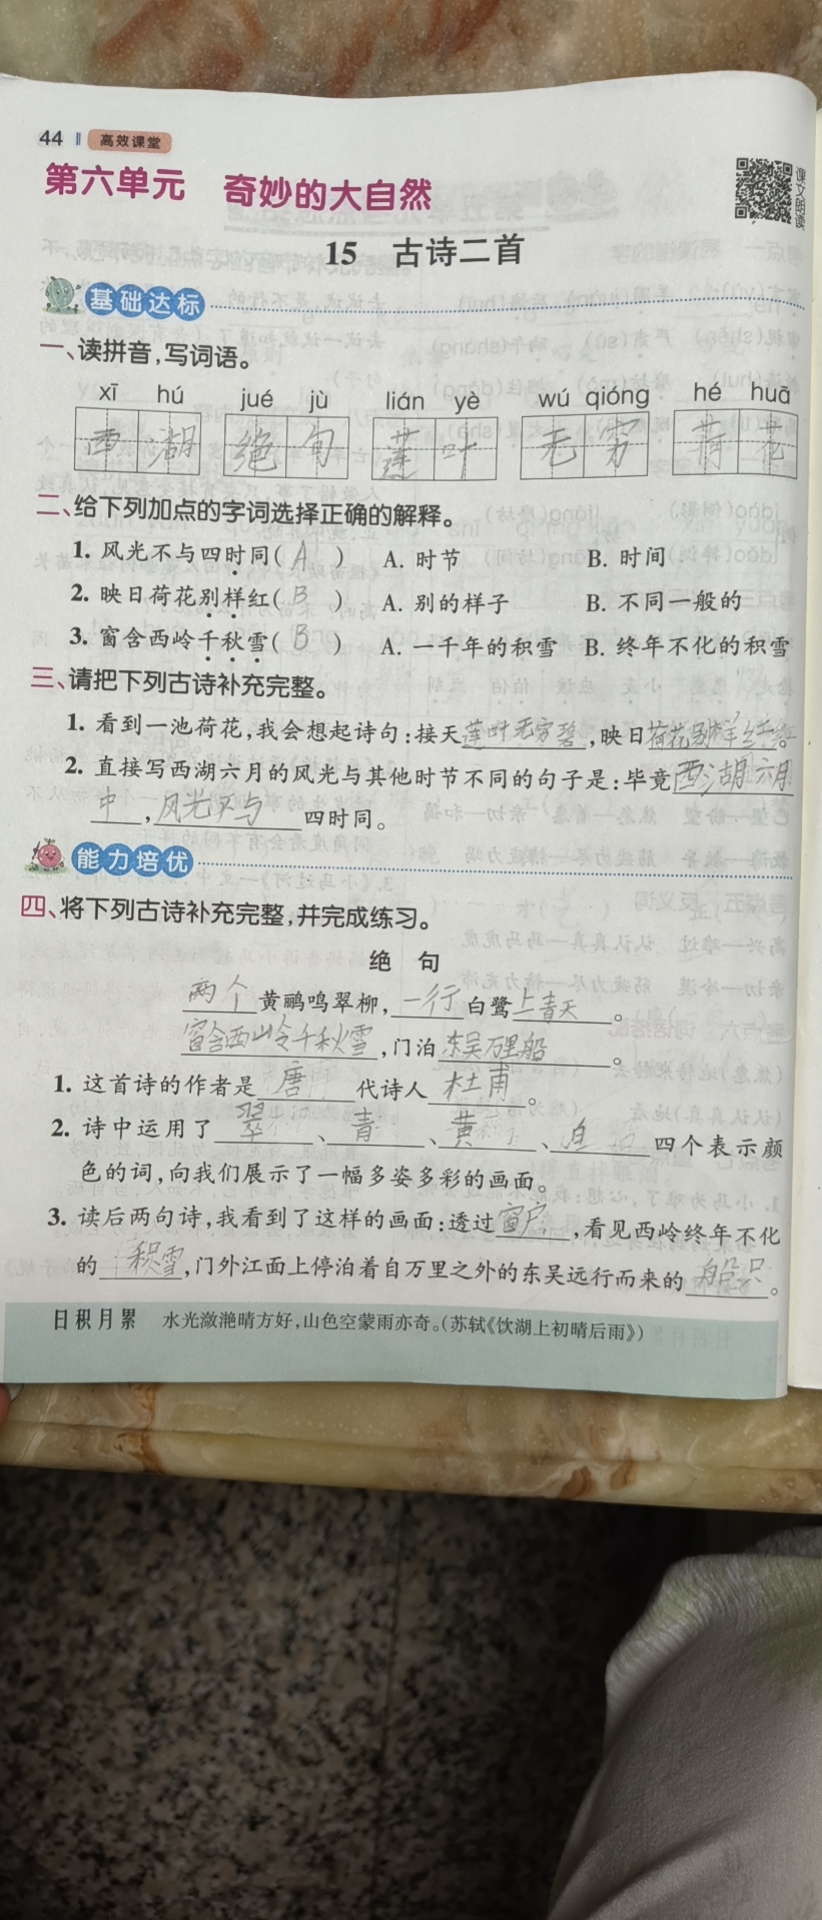 44 高效课堂
第六单元 奇妙的大自然
课文朗读
15 古诗二首
基础达标
一、读拼音,写词语。
xī hú jué jù lián yè wú qióng hé huā
西湖 绝句 莲叶 无穷 荷花
二、给下列加点的字词选择正确的解释。
1. 风光不与四时同( A ) A. 时节 B. 时间
2. 映日荷花别样红( B ) A. 别的样子 B. 不同一般的
3. 窗含西岭千秋雪( B ) A. 一千年的积雪 B. 终年不化的积雪
三、请把下列古诗补充完整。
1. 看到一池荷花,我会想起诗句:接天莲叶无穷碧,映日荷花别样红。
2. 直接写西湖六月的风光与其他时节不同的句子是:毕竟西湖六月
中,风光不与四时同。
能力培优
四、将下列古诗补充完整,并完成练习。
绝 句
两个黄鹂鸣翠柳,一行白鹭上青天。
窗含西岭千秋雪,门泊东吴万里船。
1. 这首诗的作者是唐代诗人杜甫。
2. 诗中运用了翠、青、黄、白四个表示颜
色的词,向我们展示了一幅多姿多彩的画面。
3. 读后两句诗,我看到了这样的画面:透过窗户,看见西岭终年不化
的积雪,门外江面上停泊着自万里之外的东吴远行而来的船只。
日积月累 水光潋滟晴方好,山色空蒙雨亦奇。(苏轼《饮湖上初晴后雨》)